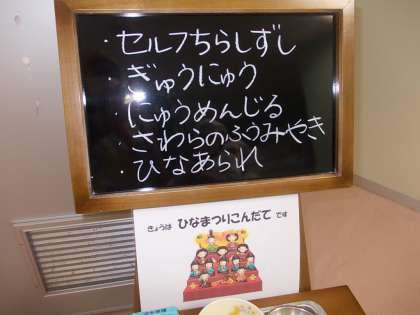 ・セルフちらしずし
・ぎゅうにゅう
・にゅうめんじる
・さわらのふうみやき
・ひなあられ
きょうは ひなまつりこんだて です